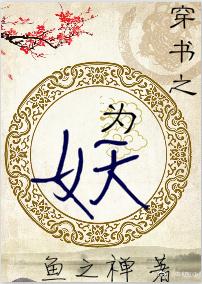 穿书之
为
妖
鱼之禅 著